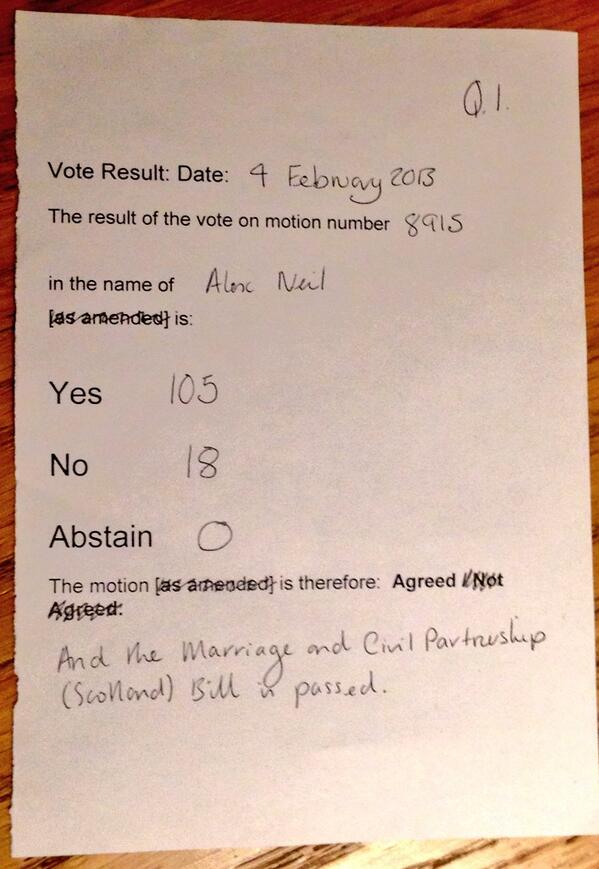 Q.1.
Vote Result: Date: 4 February 2013
The result of the vote on motion number 8915
in the name of Alex Neil
[as amended] is:
Yes 105
No 18
Abstain 0
The motion [as amended] is therefore: Agreed / Not
Agreed:
And the Marriage and Civil Partnership
(Scotland) Bill is passed.